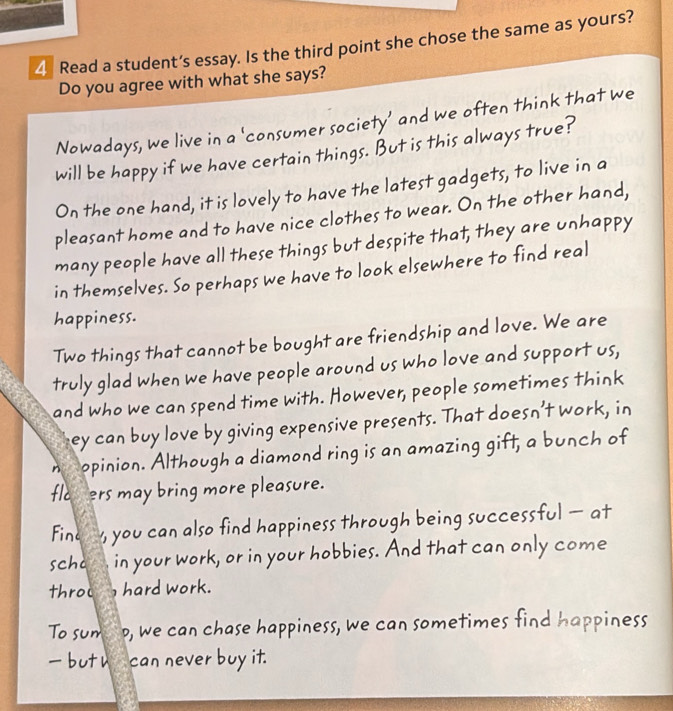 4 Read a student's essay. Is the third point she chose the same as yours?
Do you agree with what she says?
Nowadays, we live in a 'consumer society' and we often think that we
will be happy if we have certain things. But is this always true?
On the one hand, it is lovely to have the latest gadgets, to live in a
pleasant home and to have nice clothes to wear. On the other hand,
many people have all these things but despite that, they are unhappy
in themselves. So perhaps we have to look elsewhere to find real
happiness.
Two things that cannot be bought are friendship and love. We are
truly glad when we have people around us who love and support us,
and who we can spend time with. However, people sometimes think
they can buy love by giving expensive presents. That doesn't work, in
opinion. Although a diamond ring is an amazing gift, a bunch of
flowers may bring more pleasure.
Finally, you can also find happiness through being successful – at
school, in your work, or in your hobbies. And that can only come
through hard work.
To sum up, we can chase happiness, we can sometimes find happiness
– but we can never buy it.